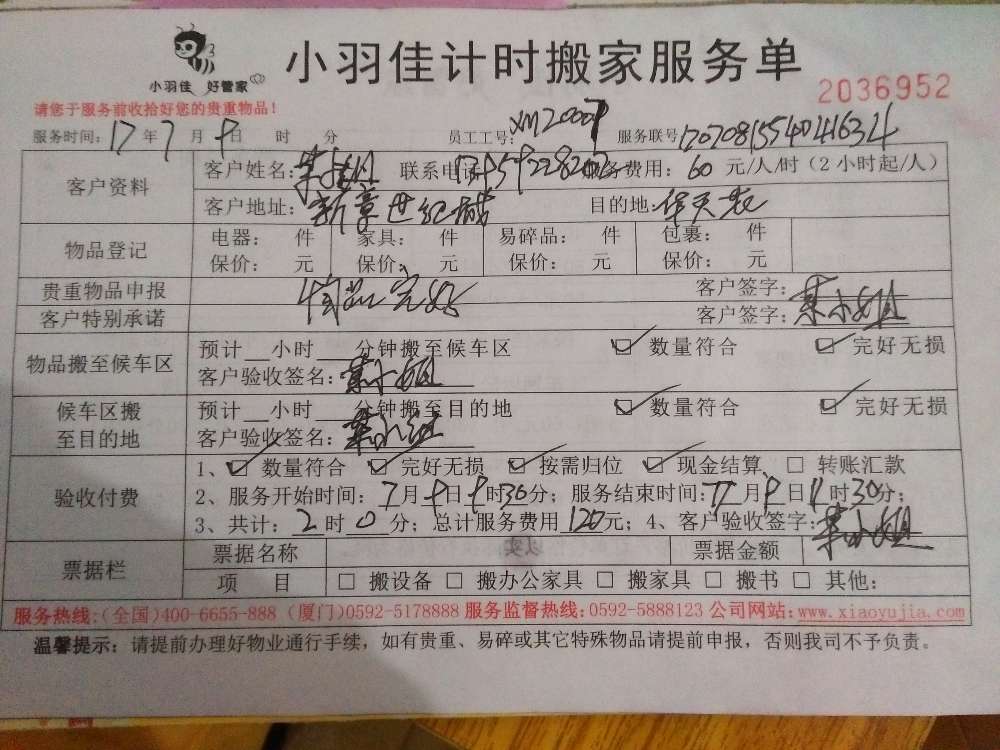 小羽佳 好管家
小羽佳计时搬家服务单
2036952
请您于服务前收拾好您的贵重物品!
服务时间: 17 年 7 月 9 日 时 分 员工工号: 服务联号
客户资料 客户姓名: 联系电话 服务费用: 60 元/人/时(2小时起/人)
客户地址: 新景世纪城 目的地:
物品登记 电器: 件 家具: 件 易碎品: 件 包裹: 件
保价: 元 保价: 元 保价: 元 保价: 元
贵重物品申报 客户签字:
客户特别承诺 物品完好 客户签字: 叶小姐
物品搬至候车区 预计__小时___分钟搬至候车区 ☑ 数量符合 ☑ 完好无损
客户验收签名: 叶小姐
候车区搬至目的地 预计__小时___分钟搬至目的地 ☑ 数量符合 ☑ 完好无损
客户验收签名: 叶小姐
验收付费 1、☑ 数量符合 ☑ 完好无损 ☑ 按需归位 ☑ 现金结算、□ 转账汇款
2、服务开始时间: 7月9日9时30分; 服务结束时间: 7月9日11时30分;
3、共计: 2 时 0 分; 总计服务费用 120元; 4、客户验收签字: 叶小姐
票据栏 票据名称 票据金额
项 目 □ 搬设备 □ 搬办公家具 □ 搬家具 □ 搬书 □ 其他:
服务热线:(全国)400-6655-888 (厦门)0592-5178888 服务监督热线:0592-5888123 公司网站:www.xiaoyujia.com
温馨提示: 请提前办理好物业通行手续，如有贵重、易碎或其它特殊物品请提前申报，否则我司不予负责。